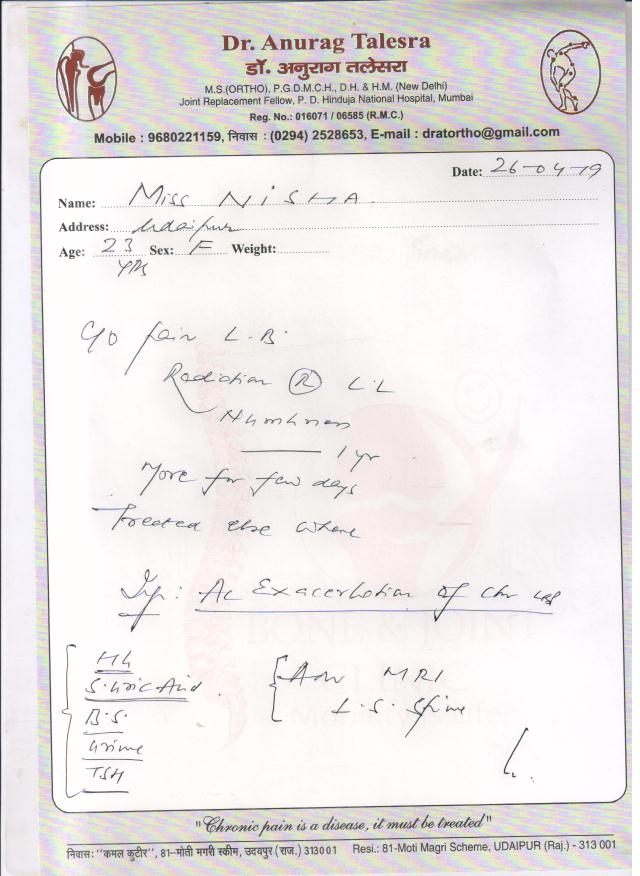 Dr. Anurag Talesra
डॉ. अनुराग तलेसरा
M.S.(ORTHO), P.G.D.M.C.H., D.H. & H.M. (New Delhi)
Joint Replacement Fellow, P. D. Hinduja National Hospital, Mumbai
Reg. No.: 016071 / 06585 (R.M.C.)
Mobile : 9680221159, निवास : (0294) 2528653, E-mail : dratortho@gmail.com
Date: 26-04-19
Name: Miss NISHA
Address: Udaipur
Age: 23 yrs Sex: F Weight:
C/O Pain L.B.
Radiation (R) L.L
Numbness
1 yr
More for few days
Treated else where
Imp: Ac Exacerbation of Chr
Hb
S. Uric Acid
B.S.
Urine
TSH
Adv MRI
L.S. Spine
BONE & JOINT
CLINIC
"Chronic pain is a disease, it must be treated"
निवास: "कमल कुटीर", 81-मोती मगरी स्कीम, उदयपुर (राज.) 313001 Resi.: 81-Moti Magri Scheme, UDAIPUR (Raj.) - 313 001